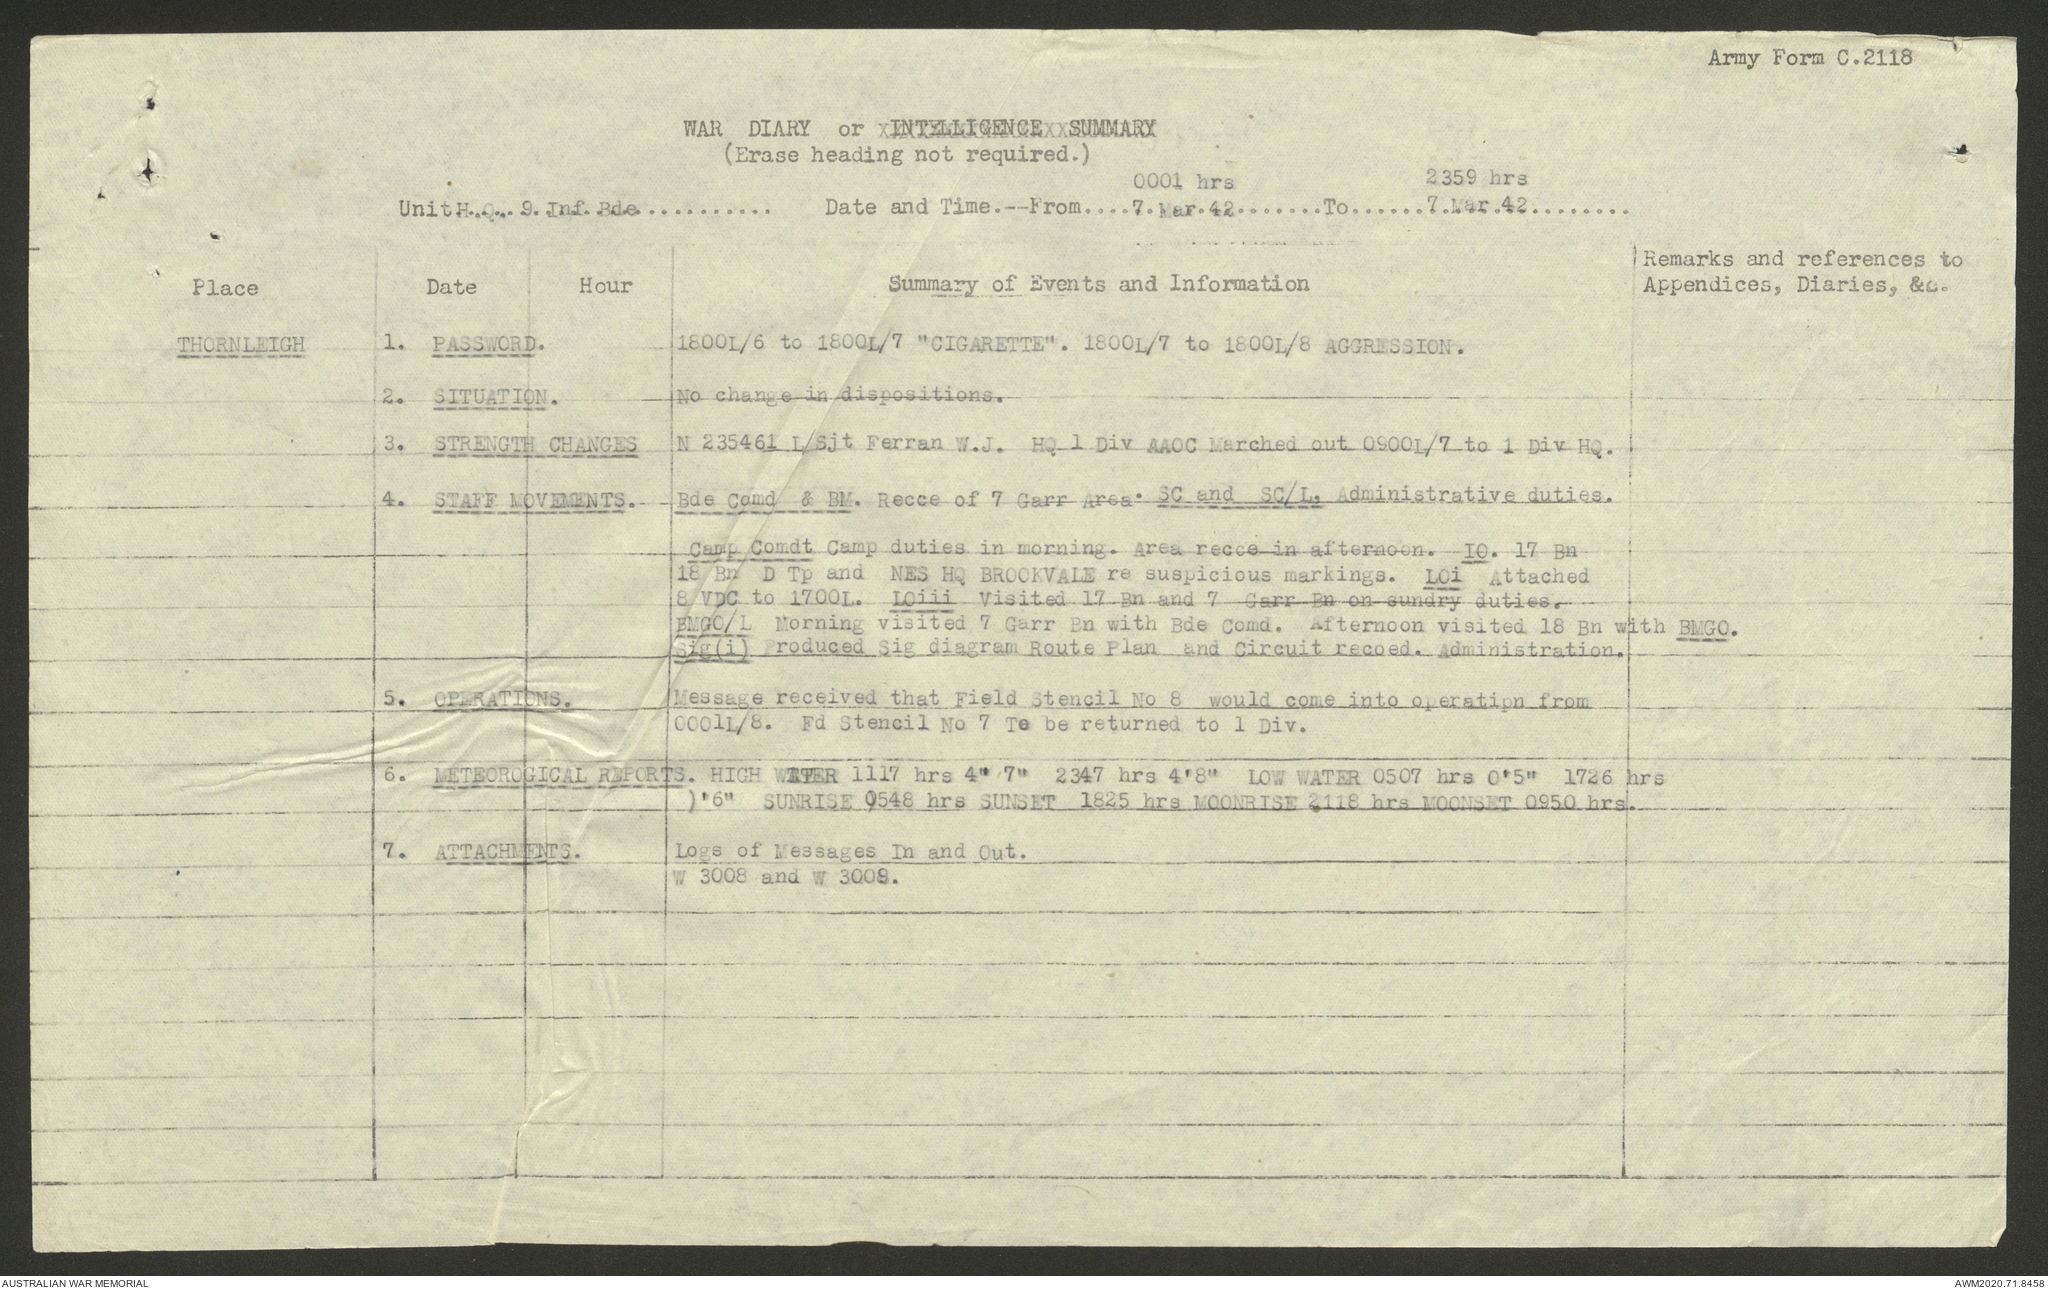 Army Form C.2118
WAR DIARY or INTELLIGENCE SUMMARY
(Erase heading not required.)
0001 hrs 2359 hrs
Unit H.Q. 9 Inf Bde........... Date and Time.--From....7 Mar 42.......To......7 Mar 42........
Remarks and references to
Place Date Hour Summary of Events and Information Appendices, Diaries, &c.
THORNLEIGH 1. PASSWORD. 1800L/6 to 1800L/7 "CIGARETTE". 1800L/7 to 1800L/8 AGGRESSION.
2. SITUATION. No change in dispositions.
3. STRENGTH CHANGES N 235461 L/Sjt Ferran W.J. HQ 1 Div AAOC Marched out 0900L/7 to 1 Div HQ.
4. STAFF MOVEMENTS. Bde Comd & BM. Recce of 7 Garr Area. SC and SC/L. Administrative duties.
Camp Comdt Camp duties in morning. Area recce in afternoon. IO. 17 Bn
18 Bn D Tp and NES HQ BROOKVALE re suspicious markings. LOi Attached
8 VDC to 1700L. LOiii Visited 17 Bn and 7 Garr Bn on sundry duties.
BMGO/L Morning visited 7 Garr Bn with Bde Comd. Afternoon visited 18 Bn with BMGO.
Sig(i) Produced Sig diagram Route Plan and Circuit recoed. Administration.
5. OPERATIONS. Message received that Field Stencil No 8 would come into operatipn from
0001L/8. Fd Stencil No 7 To be returned to 1 Div.
6. METEOROGICAL REPORTS. HIGH WATER 1117 hrs 4" 7" 2347 hrs 4'8" LOW WATER 0507 hrs 0'5" 1726 hrs
)'6" SUNRISE 0548 hrs SUNSET 1825 hrs MOONRISE 2118 hrs MOONSET 0950 hrs.
7. ATTACHMENTS. Logs of Messages In and Out.
W 3008 and W 3009.
AUSTRALIAN WAR MEMORIAL AWM2020.71.8458